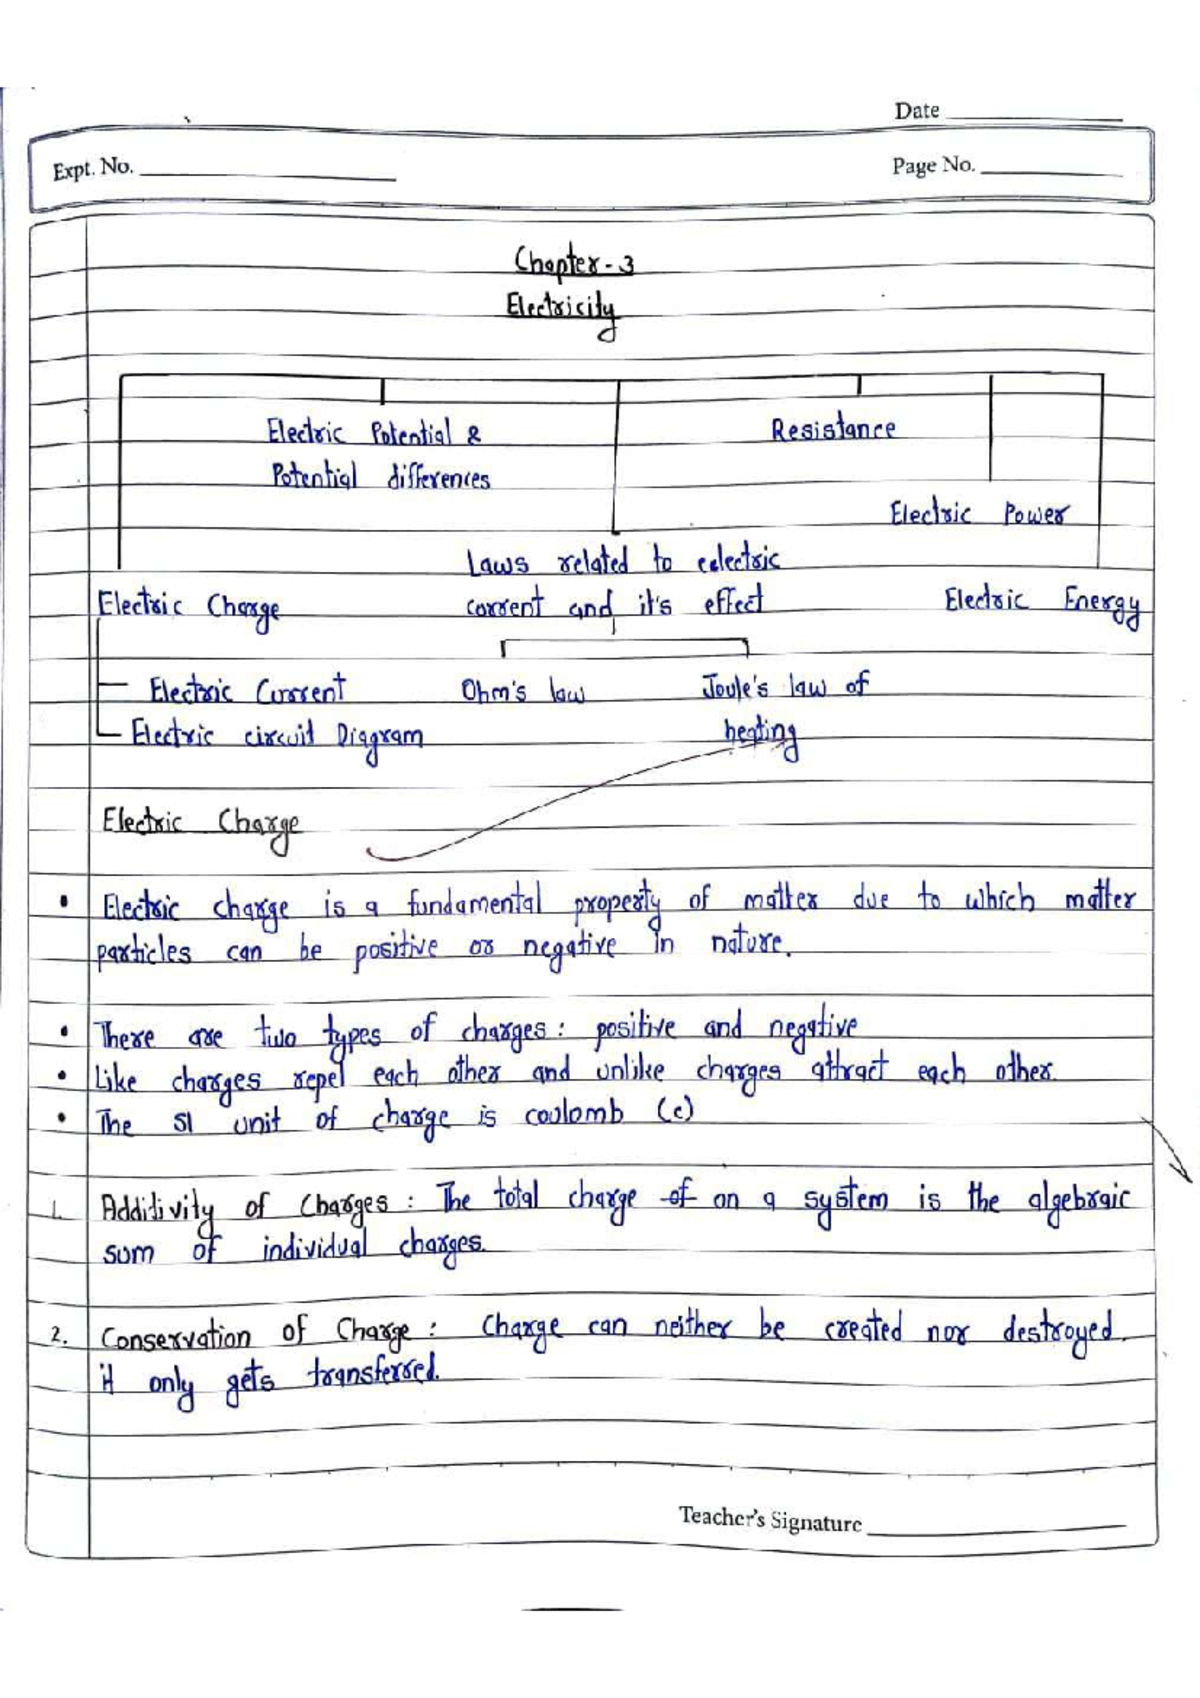 Date
Expt. No.
Page No.
Chapter-3
Electricity
Electric Potential &
Resistance
Potential differences
Electric Power
Laws related to eelectric
Electric Charge
current and it's effect
Electric Energy
Electric Current
Ohm's law
Joule's law of
Electric circuit Diagram
heating
Electric Charge
• Electric charge is a fundamental property of matter due to which matter
particles can be positive or negative in nature.
• There are two types of charges: positive and negative
• Like charges repel each other and unlike charges attract each other.
• The SI unit of charge is coulomb (c)
1. Additivity of Charges: The total charge of on a system is the algebraic
sum of individual charges.
2. Conservation of Charge: Charge can neither be created nor destroyed.
it only gets transferred.
Teacher's Signature